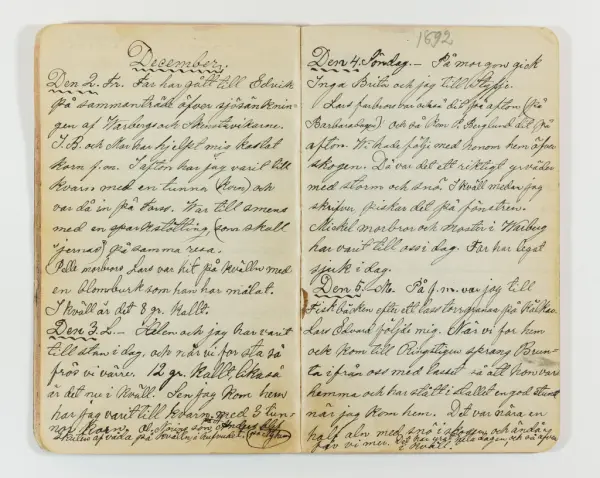 December.
Den 2. Fr. Far har gått till Edvik
på sammanträde öfver sjösänknin-
gen af Warbergs och
I. B. och Mar har hjelpt mig kastat
korn f.m. I afton har jag varit till
kvarn med en tunna (korn) och
var då in på Fors. War till smens
med en sparkstötting (som skall
"jernas") på samma resa.
(Pelle morbrors Lars var hit på kvällen med
en blomburk som han har målat.
I kväll är det 8 gr. kallt.
Den 3. L. – Helen och jag har varit
till stan i dag, och när vi for sta så
frös vi värre. 12 gr. kallt lika så
är det nu i kväll. Sen jag kom hem
har jag varit till kvarn med 3 tun-
nor korn. O. som Anders
på
1892
Den 4. Söndag. – På morgon gick
Inga Brita och jag till
Lars farbror var också dit på afton (på
Barbaradagen) och så kom P. Berglund dit på
afton. Wi hade följe med honom hem öfver
skogen. Då var det ett riktigt yrväder
med storm och snö. I kväll medan jag
skrifver piskar det på fönstren.
Mickel morbror och moster i Warberg
har varit till oss i dag. Far har legat
sjuk i dag.
Den 5. Mo. På f.m. var jag till
Fiskbäcken efter ett lass torrgranar på kälkar.
Lars Edvard följde mig. När vi for hem
och kom till sprang Brun-
ta ifrån oss med lasset så att hon var
hemma och har stått i stallet en god stund
när jag kom hem. Det var nära en
half aln med snö i skogen, och ändå
mer. hela dagen, och så äfven
i kväll.